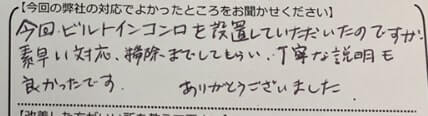 【今回の弊社の対応でよかったところをお聞かせください】
今回ビルトインコンロを設置していただいたのですが
素早い対応、掃除までしてもらい、丁寧な説明も
良かったです。 ありがとうございました